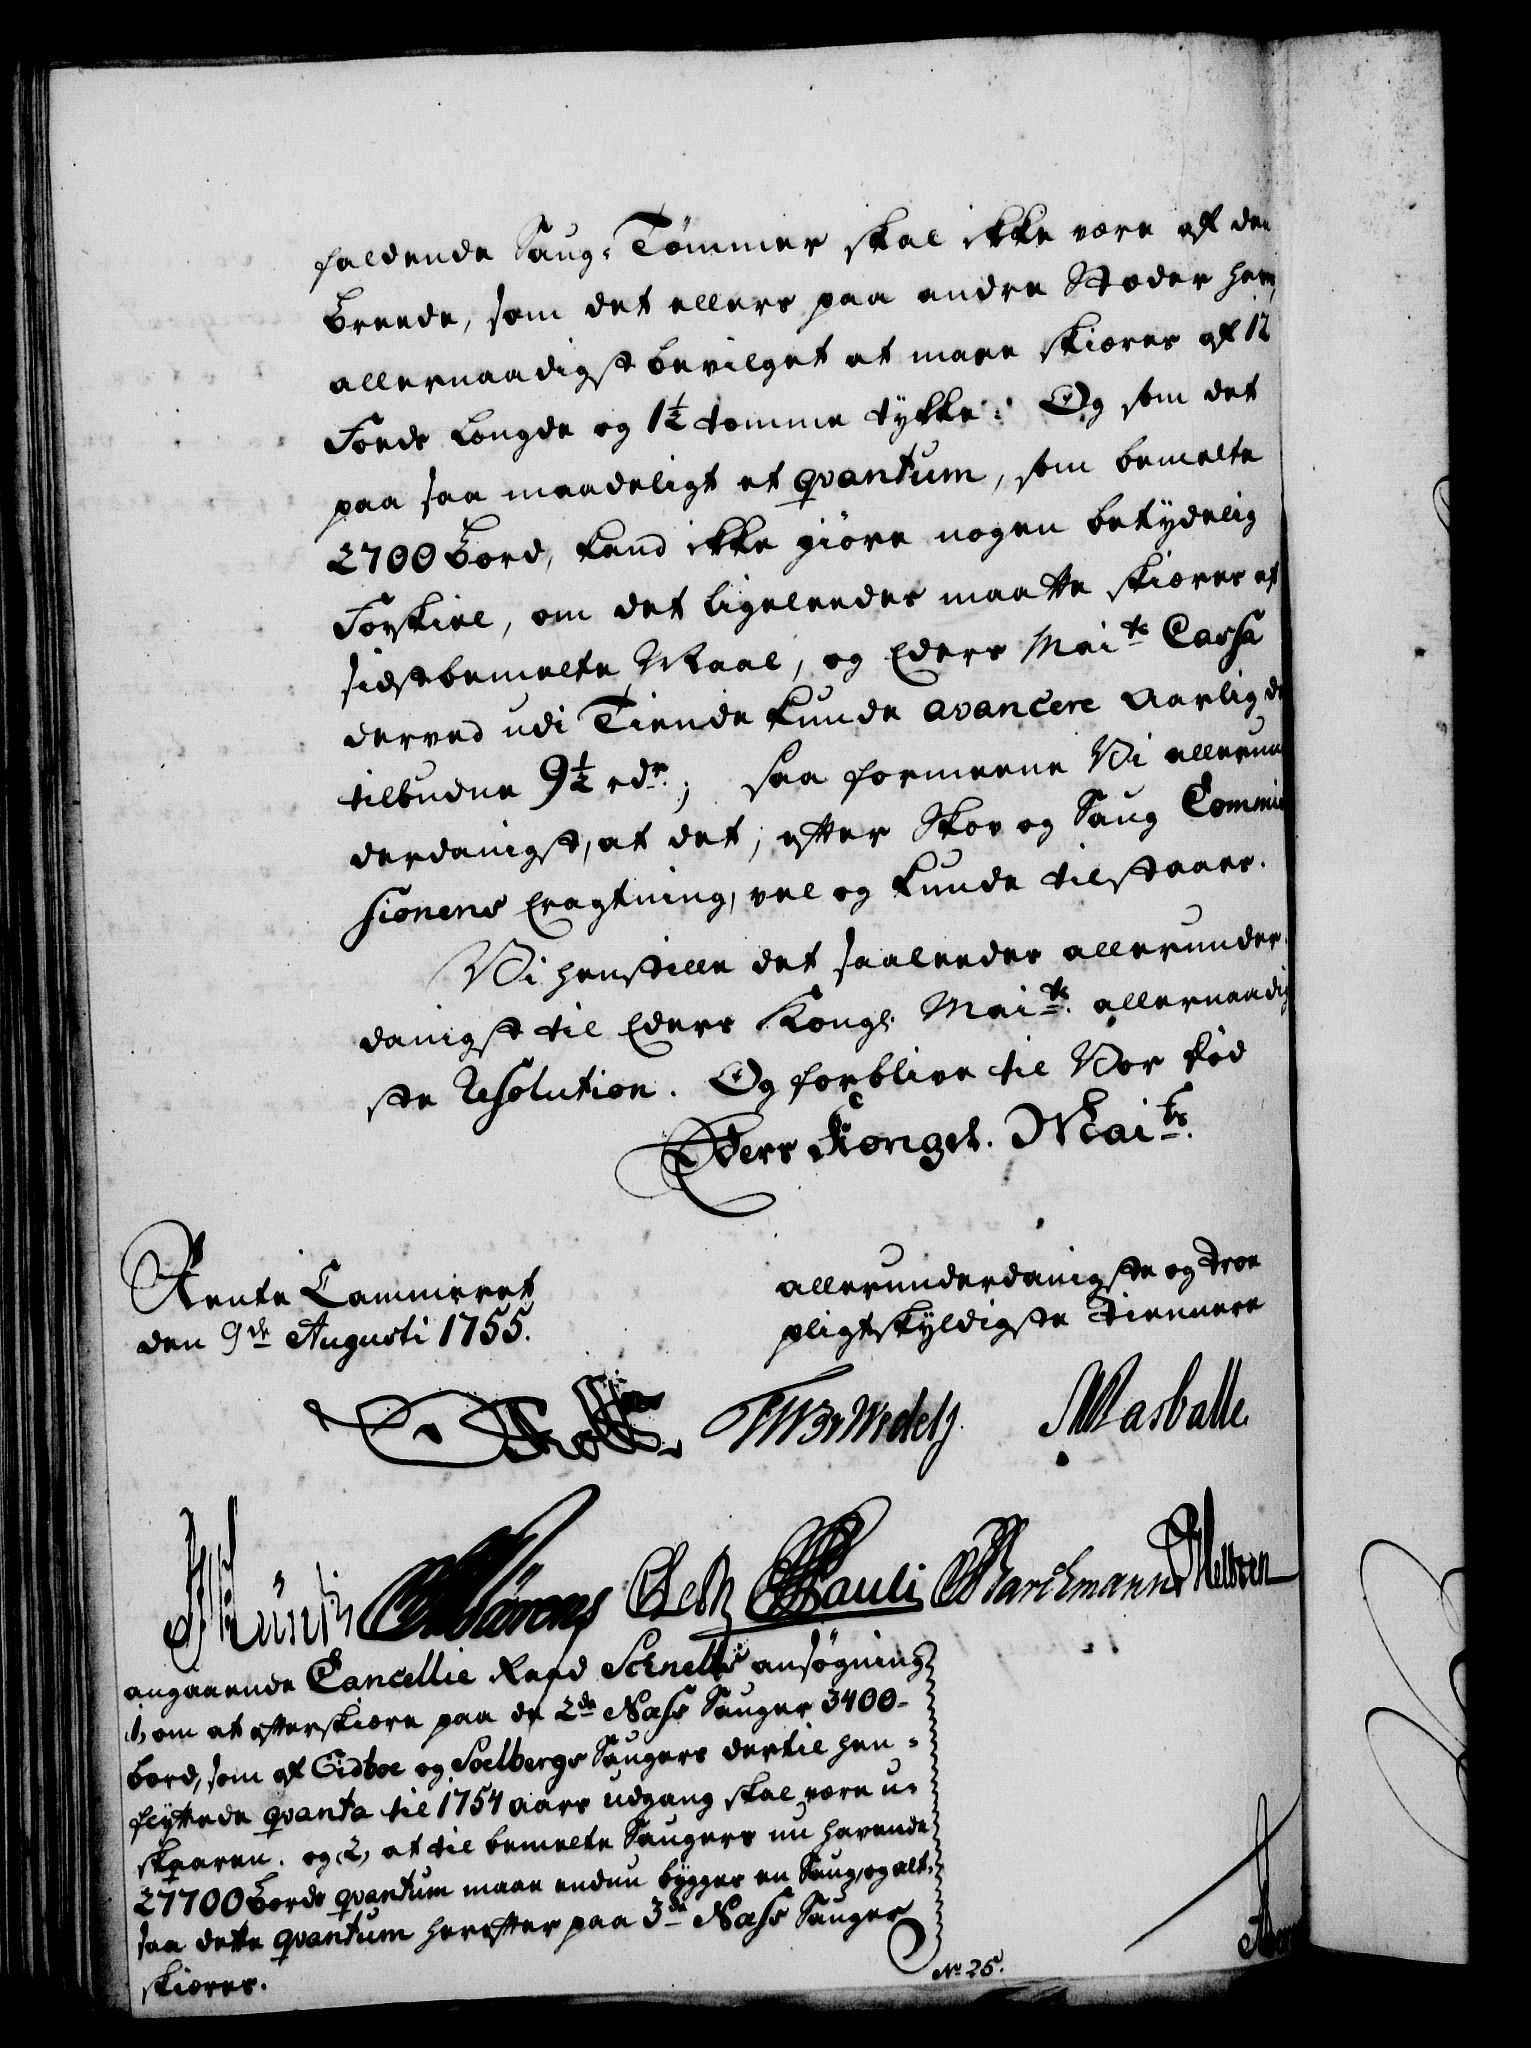 faldende Saug-Tømmer skal ikke være af den
Breede, som det ellers paa andre Stæder her,
allernaadigst bevilget at maae skiæres af 12
Foeds Længde og 1½ tomme tykke: Og som det
paa saa maadeligt et qvantum, som bemelte
2700 Bord, kand ikke giøre nogen betydelig
Forskiel, om det ligeleedes maatte skiæres af
sidstbemelte Maal, og Eders Mai.ts Cassa
derved udi Tiende kunde avancere Aarlig de
tilbudne 9½ rdr.; saa formeene Vi allerun
derdanigst, at det, efter Skov og Saug Commis
sionens Eragtning, vel og kunde tilstaaes.
Vi henstille det saaleedes allerunder-
danigst til Eders Kongl. Mai.ts allernaadig
ste Resolution. Og forblive til Vor Død
Eders Kongel. Mai.ts
Rente Cammeret
den 9de Augusti 1755.
allerunderdanigste og troe
pligtskyldigste Tiennere
Wedely Wasballe
Küntz Pauli Barchmann
angaaende Cancellie Raad Schnells ansøgning
1, om at efterskiære paa de 2de Næss Sauger 3400-
bord, som af Eidboe og Soelbergs Saugers dertil hen-
flyttede qvanta til 1754 aars udgang skal være u-
skaaren. og 2, at til bemelte Saugers nu havende
27700 Bords qvantum maae endnu bygges en Saug, og alt-
saa dette qvantum herefter paa 3de Næss Sauger
skiæres.
No 25.